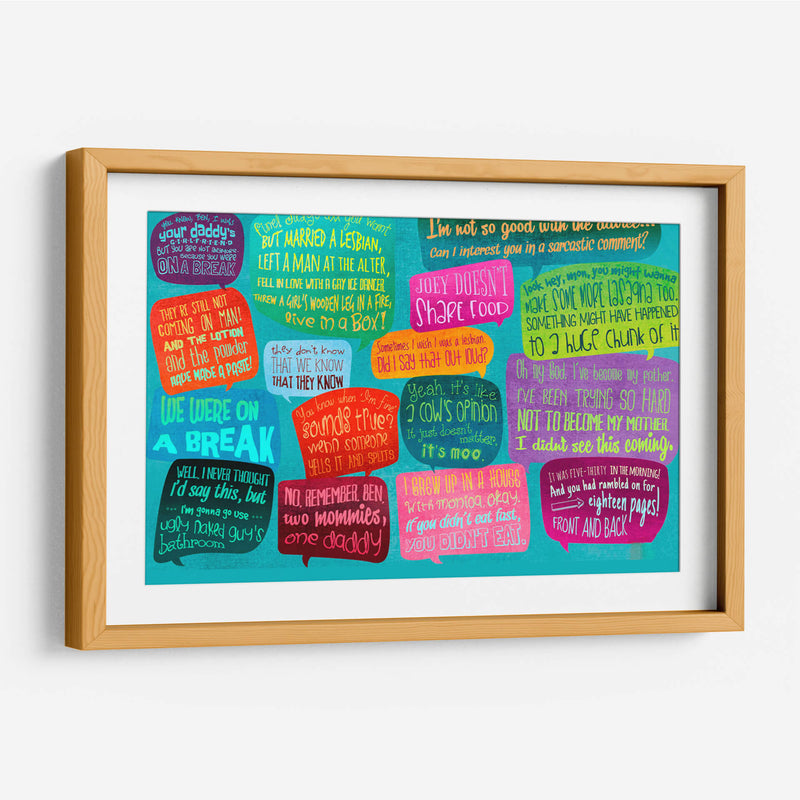 You know, Ben, I was
your daddy's
GIRLFRIEND
BUT YOU ARE NOT
because you were
ON A BREAK
you want,
BUT MARRIED A LESBIAN,
LEFT A MAN AT THE ALTER,
FELL IN LOVE WITH A GAY ICE DANCER,
THREW A GIRL'S WOODEN LEG IN A FIRE,
live in a Box!
I'm not so good with the advice...
Can I interest you in a sarcastic comment?
JOEY DOESN'T
SHARE FOOD
look hey, mon, you might wanna
make some more lasagna too.
SOMETHING MIGHT HAVE HAPPENED
TO a huge chunk of it
THEY'RE STILL NOT
COMING ON MAN!
AND THE LOTION
and the powder
HAVE MADE A PASTE!
they don't know
THAT WE KNOW
THAT THEY KNOW
Sometimes I wish I was a lesbian.
Did I say that out loud?
WE WERE ON
A BREAK
You know when I'm fine
sounds true?
when someone
YELLS IT AND SPLITS
Yeah, it's like
a cow's opinion
It just doesn't
matter.
it's moo.
Oh my God. I've become my father.
I'VE BEEN TRYING SO HARD
NOT TO BECOME MY MOTHER.
I didn't see this coming.
WELL, I NEVER THOUGHT
i'd say this, but
...I'm gonna go use...
ugly naked guy's
bathroom
NO, REMEMBER, BEN,
two mommies,
one daddy
I GREW UP IN A HOUSE
with monica, okay.
If you didn't eat fast,
YOU DIDN'T EAT.
IT WAS FIVE-THIRTY IN THE MORNING!
And you had rambled on for
eighteen pages!
FRONT AND BACK